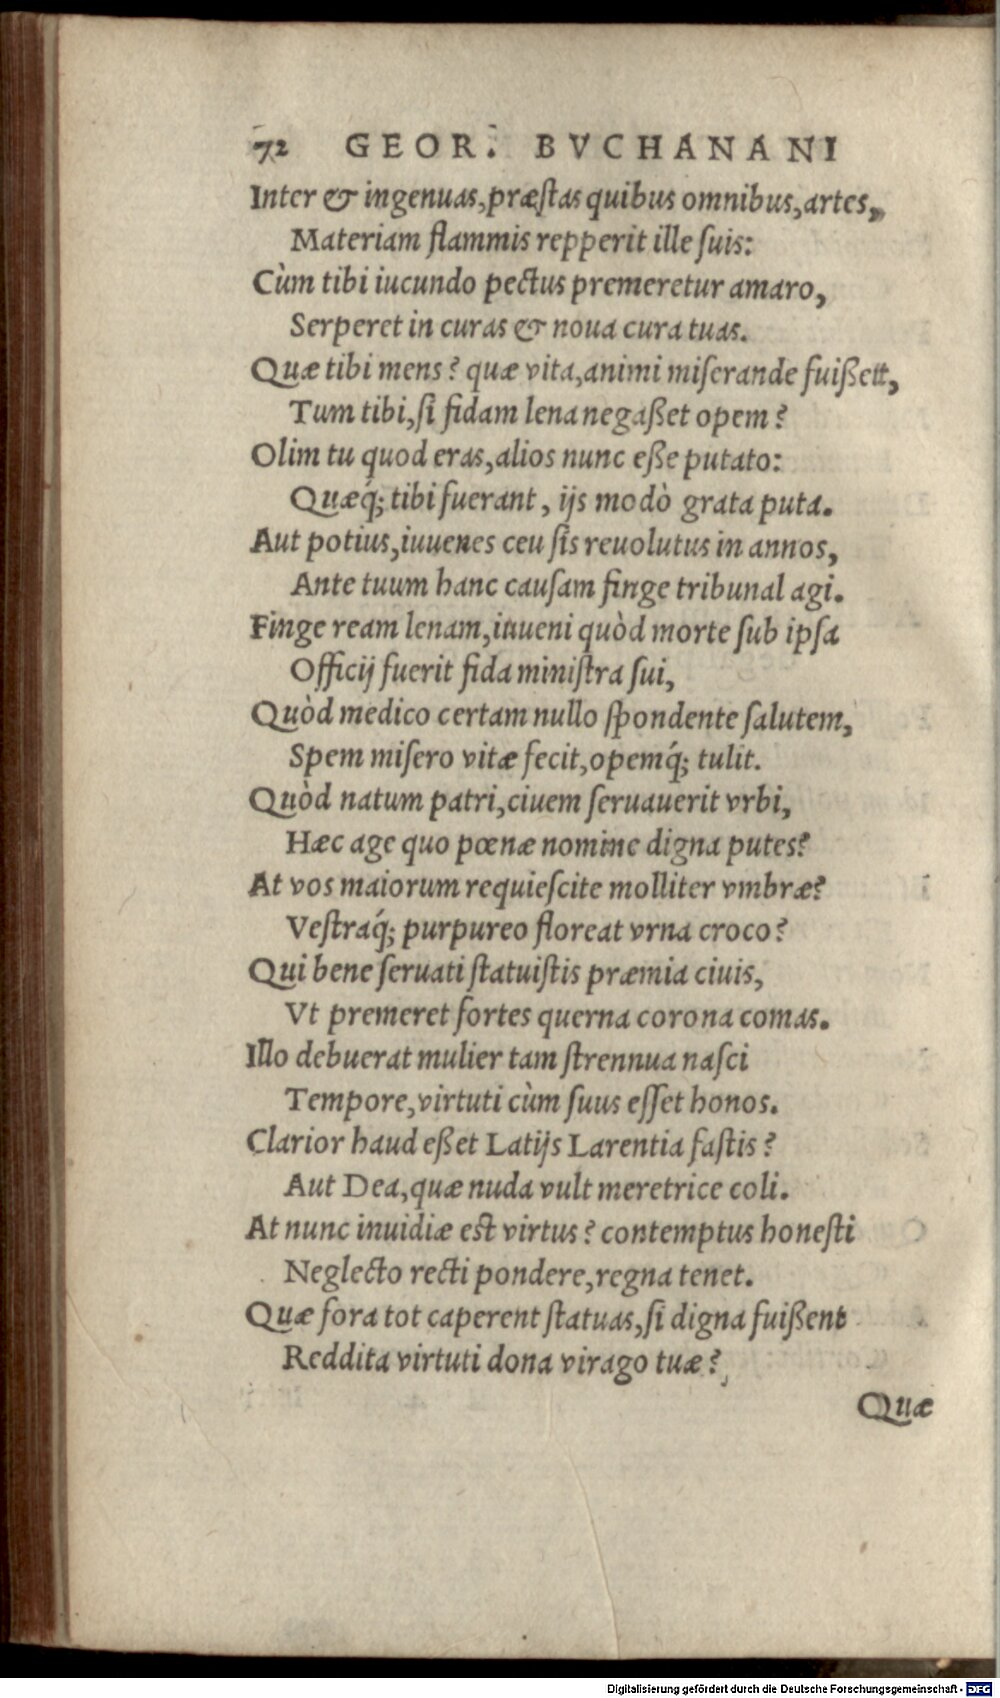 72 GEOR. BVCHANANI
Inter & ingenuas, præstas quibus omnibus, artes,
Materiam flammis repperit ille suis:
Cùm tibi iucundo pectus premeretur amaro,
Serperet in curas & noua cura tuas.
Quæ tibi mens? quæ vita, animi miserande fuißett,
Tum tibi, si fidam lena negaßet opem?
Olim tu quod eras, alios nunc eße putato:
Quæq́; tibi fuerant, ijs modò grata puta.
Aut potius, iuuenes ceu sis reuolutus in annos,
Ante tuum hanc causam finge tribunal agi.
Finge ream lenam, iuueni quòd morte sub ipsa
Officij fuerit fida ministra sui,
Quòd medico certam nullo spondente salutem,
Spem misero vitæ fecit, opemq́; tulit.
Quòd natum patri, ciuem seruauerit vrbi,
Hæc age quo pœnæ nomine digna putes?
At vos maiorum requiescite molliter vmbræ?
Vestraq́; purpureo floreat vrna croco?
Qui bene seruati statuistis præmia ciuis,
Vt premeret fortes querna corona comas.
Illo debuerat mulier tam strennua nasci
Tempore, virtuti cùm suus esset honos.
Clarior haud eßet Latijs Larentia fastis?
Aut Dea, quæ nuda vult meretrice coli.
At nunc inuidiæ est virtus? contemptus honesti
Neglecto recti pondere, regna tenet.
Quæ fora tot caperent statuas, si digna fuißent
Reddita virtuti dona virago tuæ?
Quæ
Digitalisierung gefördert durch die Deutsche Forschungsgemeinschaft - DFG